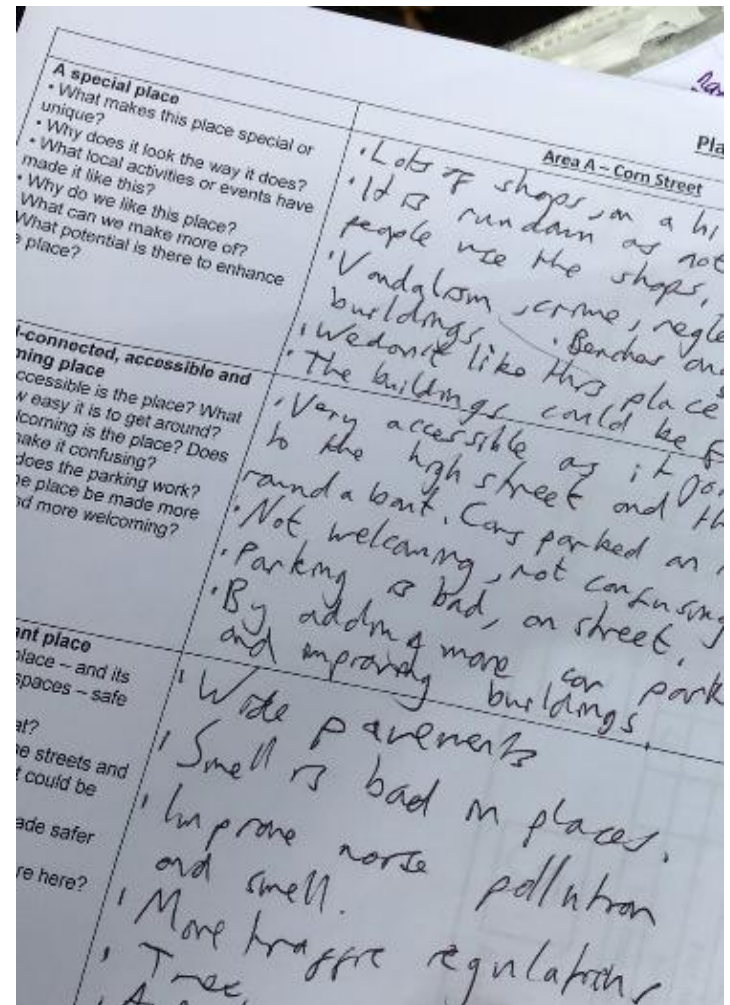 Pla
Area A – Corn Street
A special place
• What makes this place special or
unique?
• Why does it look the way it does?
• What local activities or events have
made it like this?
• Why do we like this place?
What can we make more of?
What potential is there to enhance
place?
• Lots of shops, on a hi
• It is rundown as not
people use the shops,
• Vandalism, crime, negle
buildings. • Benches and
• We don't like this place
• The buildings could be
l-connected, accessible and
ming place
ccessible is the place? What
w easy it is to get around?
lcoming is the place? Does
ake it confusing?
does the parking work?
e place be made more
nd more welcoming?
• Very accessible as it
to the high street and th
roundabout. Cars parked on
• Not welcoming, not confusing
• Parking is bad, on street,
• By adding more car park
and improving buildings.
ant place
lace – and its
spaces – safe
at?
e streets and
t could be
ade safer
re here?
• Wide pavements
• Smell is bad in places.
• Improve noise pollution
and smell.
• More traffic regulations
• Trees